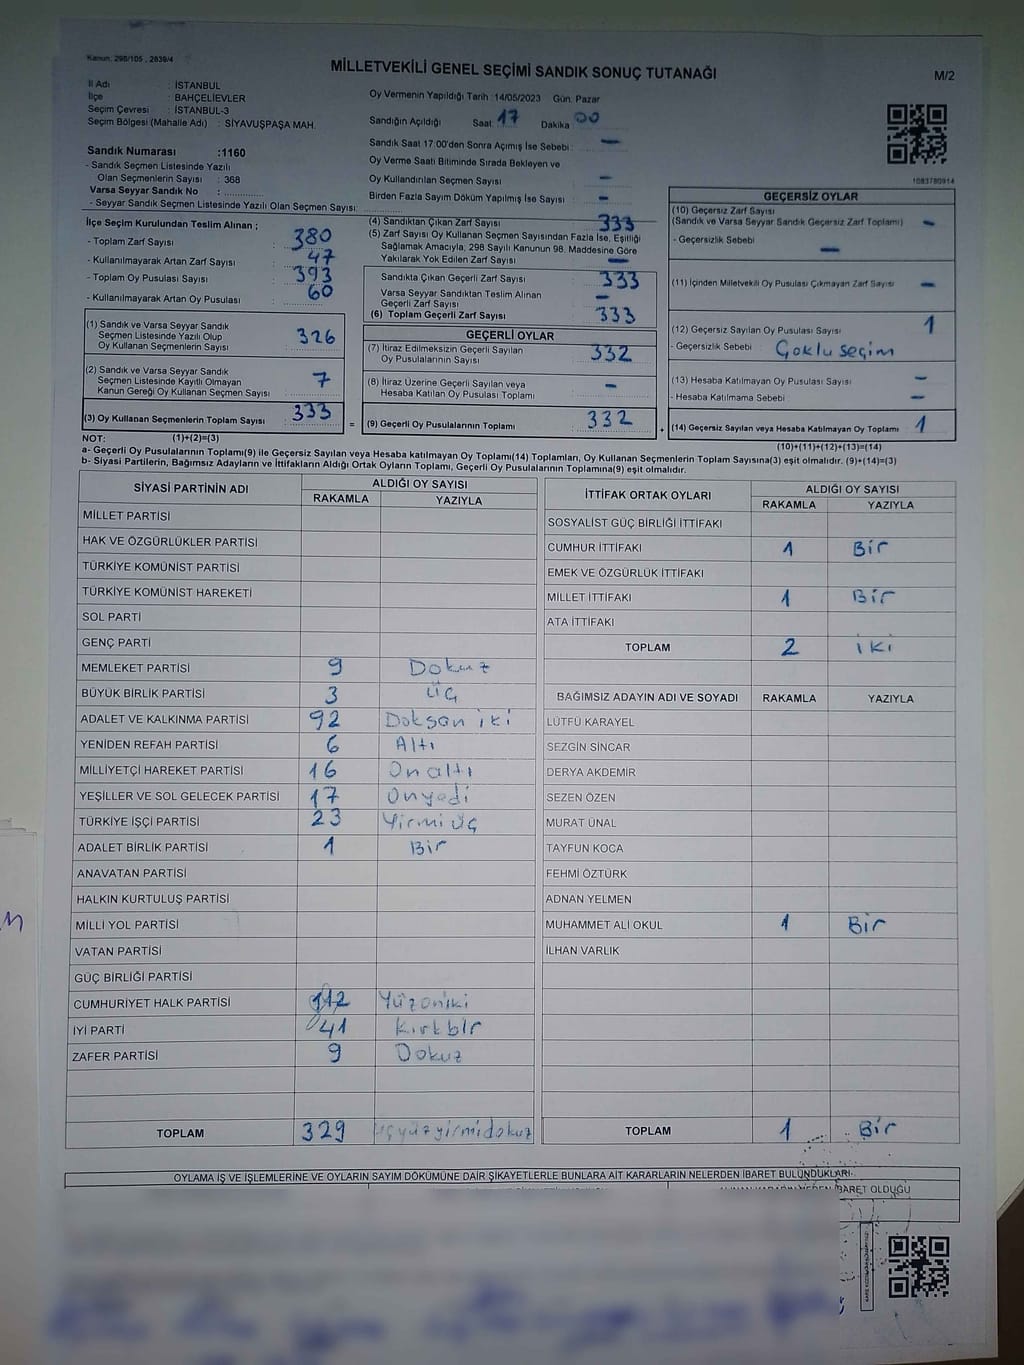 Kanun: 298/105 , 2839/4
MİLLETVEKİLİ GENEL SEÇİMİ SANDIK SONUÇ TUTANAĞI
M/2
İl Adı : İSTANBUL
İlçe : BAHÇELİEVLER
Seçim Çevresi : İSTANBUL-3
Seçim Bölgesi (Mahalle Adı) : SİYAVUŞPAŞA MAH.
Oy Vermenin Yapıldığı Tarih :14/05/2023 Gün: Pazar
Sandığın Açıldığı Saat: 17 Dakika : 00
Sandık Saat 17:00'den Sonra Açımış İse Sebebi : —
Oy Verme Saati Bitiminde Sırada Bekleyen ve
Oy Kullandırılan Seçmen Sayısı —
Birden Fazla Sayım Döküm Yapılmış İse Sayısı : —
1083780914
Sandık Numarası :1160
- Sandık Seçmen Listesinde Yazılı
Olan Seçmenlerin Sayısı : 368
Varsa Seyyar Sandık No :
- Seyyar Sandık Seçmen Listesinde Yazılı Olan Seçmen Sayısı:
İlçe Seçim Kurulundan Teslim Alınan ;
- Toplam Zarf Sayısı : 380
- Kullanılmayarak Artan Zarf Sayısı : 47
- Toplam Oy Pusulası Sayısı : 393
- Kullanılmayarak Artan Oy Pusulası : 60
(1) Sandık ve Varsa Seyyar Sandık
Seçmen Listesinde Yazılı Olup
Oy Kullanan Seçmenlerin Sayısı : 326
(2) Sandık ve Varsa Seyyar Sandık
Seçmen Listesinde Kayıtlı Olmayan
Kanun Gereği Oy Kullanan Seçmen Sayısı : 7
(3) Oy Kullanan Seçmenlerin Toplam Sayısı : 333
(4) Sandıktan Çıkan Zarf Sayısı : 333
(5) Zarf Sayısı Oy Kullanan Seçmen Sayısından Fazla İse, Eşitliği
Sağlamak Amacıyla, 298 Sayılı Kanunun 98. Maddesine Göre
Yakılarak Yok Edilen Zarf Sayısı : —
Sandıkta Çıkan Geçerli Zarf Sayısı : 333
Varsa Seyyar Sandıktan Teslim Alınan
Geçerli Zarf Sayısı : —
(6) Toplam Geçerli Zarf Sayısı : 333
GEÇERLİ OYLAR
(7) İtiraz Edilmeksizin Geçerli Sayılan
Oy Pusulalarının Sayısı : 332
(8) İtiraz Üzerine Geçerli Sayılan veya
Hesaba Katılan Oy Pusulası Toplamı : —
= (9) Geçerli Oy Pusulalarının Toplamı : 332
GEÇERSİZ OYLAR
(10) Geçersiz Zarf Sayısı
(Sandık ve Varsa Seyyar Sandık Geçersiz Zarf Toplamı) : —
- Geçersizlik Sebebi : —
(11) İçinden Milletvekili Oy Pusulası Çıkmayan Zarf Sayısı : —
(12) Geçersiz Sayılan Oy Pusulası Sayısı : 1
- Geçersizlik Sebebi : Çoklu seçim
(13) Hesaba Katılmayan Oy Pusulası Sayısı : —
- Hesaba Katılmama Sebebi : —
+ (14) Geçersiz Sayılan veya Hesaba Katılmayan Oy Toplamı : 1
NOT: (1)+(2)=(3)
(10)+(11)+(12)+(13)=(14)
a- Geçerli Oy Pusulalarının Toplamı(9) ile Geçersiz Sayılan veya Hesaba katılmayan Oy Toplamı(14) Toplamları, Oy Kullanan Seçmenlerin Toplam Sayısına(3) eşit olmalıdır. (9)+(14)=(3)
b- Siyasi Partilerin, Bağımsız Adayların ve İttifakların Aldığı Ortak Oyların Toplamı, Geçerli Oy Pusulalarının Toplamına(9) eşit olmalıdır.
SİYASİ PARTİNİN ADI ALDIĞI OY SAYISI
RAKAMLA YAZIYLA
MİLLET PARTİSİ
HAK VE ÖZGÜRLÜKLER PARTİSİ
TÜRKİYE KOMÜNİST PARTİSİ
TÜRKİYE KOMÜNİST HAREKETİ
SOL PARTİ
GENÇ PARTİ
MEMLEKET PARTİSİ 9 Dokuz
BÜYÜK BİRLİK PARTİSİ 3 Üç
ADALET VE KALKINMA PARTİSİ 92 Doksan iki
YENİDEN REFAH PARTİSİ 6 Altı
MİLLİYETÇİ HAREKET PARTİSİ 16 Onaltı
YEŞİLLER VE SOL GELECEK PARTİSİ 17 Onyedi
TÜRKİYE İŞÇİ PARTİSİ 23 Yirmi üç
ADALET BİRLİK PARTİSİ 1 Bir
ANAVATAN PARTİSİ
HALKIN KURTULUŞ PARTİSİ
MİLLİ YOL PARTİSİ
VATAN PARTİSİ
GÜÇ BİRLİĞİ PARTİSİ
CUMHURİYET HALK PARTİSİ 112 Yüzoniki
İYİ PARTİ 41 Kırkbir
ZAFER PARTİSİ 9 Dokuz
TOPLAM 329 üçyüzyirmidokuz
İTTİFAK ORTAK OYLARI ALDIĞI OY SAYISI
RAKAMLA YAZIYLA
SOSYALİST GÜÇ BİRLİĞİ İTTİFAKI
CUMHUR İTTİFAKI 1 Bir
EMEK VE ÖZGÜRLÜK İTTİFAKI
MİLLET İTTİFAKI 1 Bir
ATA İTTİFAKI
TOPLAM 2 iki
BAĞIMSIZ ADAYIN ADI VE SOYADI RAKAMLA YAZIYLA
LÜTFÜ KARAYEL
SEZGİN SİNCAR
DERYA AKDEMİR
SEZEN ÖZEN
MURAT ÜNAL
TAYFUN KOCA
FEHMİ ÖZTÜRK
ADNAN YELMEN
MUHAMMET ALİ OKUL 1 Bir
İLHAN VARLIK
TOPLAM 1 Bir
OYLAMA İŞ VE İŞLEMLERİNE VE OYLARIN SAYIM DÖKÜMÜNE DAİR ŞİKAYETLERLE BUNLARA AİT KARARLARIN NELERDEN İBARET BULUNDUKLARI
İBARET OLDUĞU